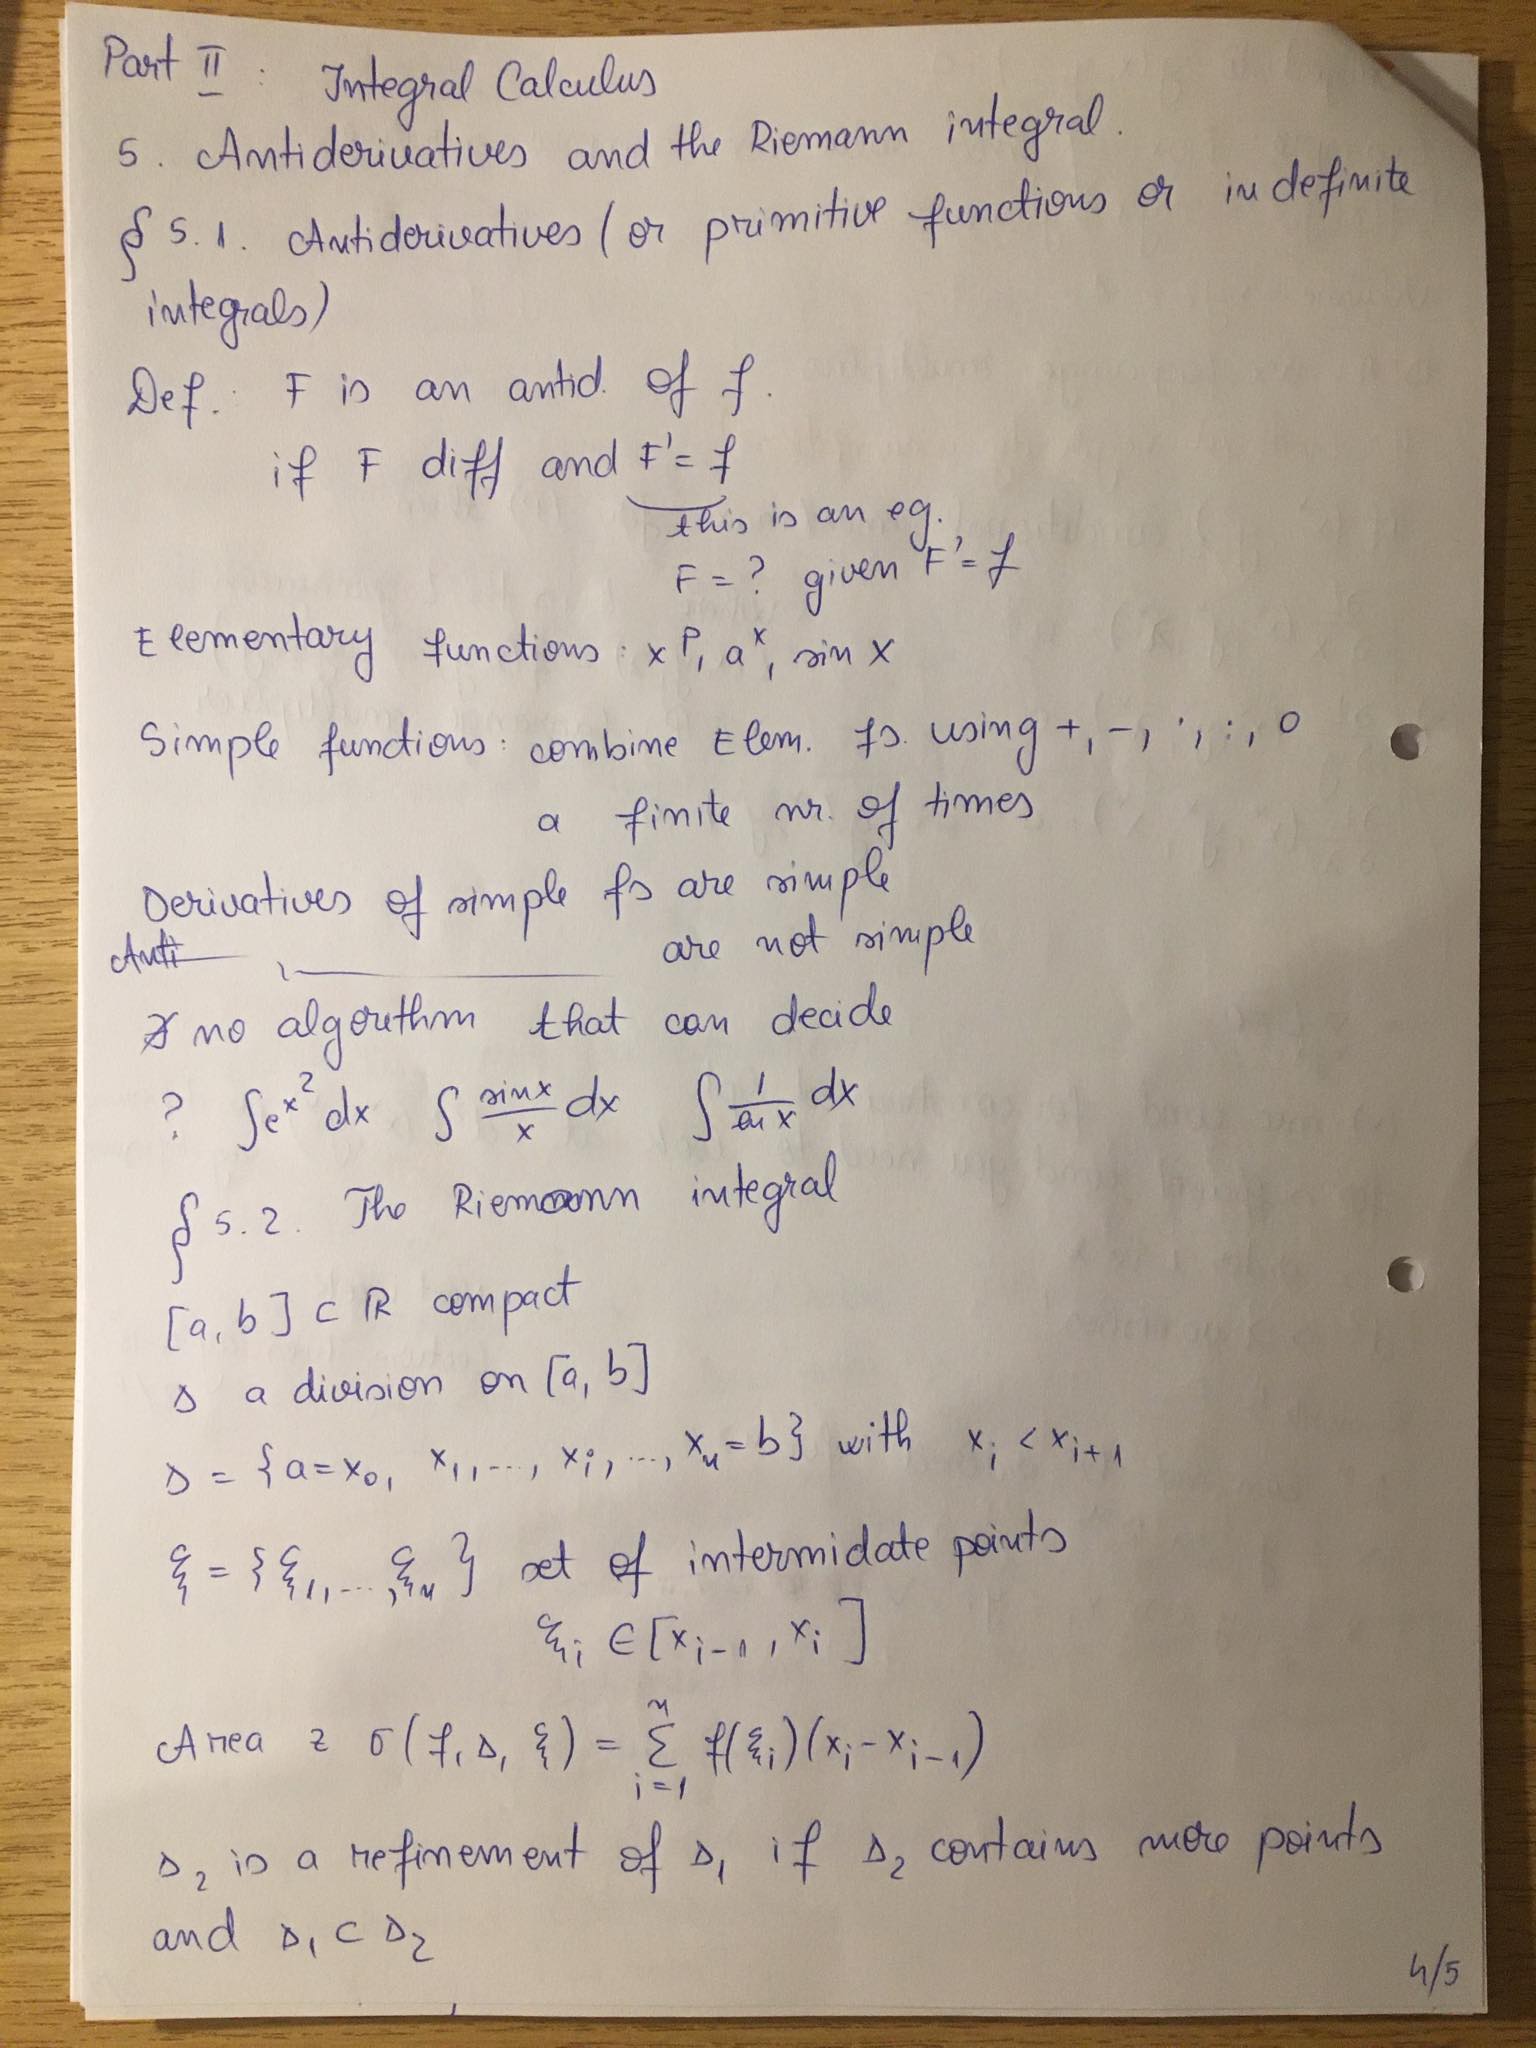 Part II : Integral Calculus
5. Antiderivatives and the Riemann integral.
§ 5.1. Antiderivatives (or primitive functions or indefinite
integrals)
Def.: F is an antid. of f.
if F diff and F' = f
this is an eq.
F = ? given F' = f
Elementary functions: x^p, a^x, sin x
Simple functions: combine Elem. fs. using +, -, ·, :, o
a finite nr. of times
Derivatives of simple fs are simple
Anti— —— are not simple
no algorithm that can decide
? ∫e^x² dx ∫ sin x / x dx ∫ 1 / ln x dx
§ 5.2. The Riemann integral
[a, b] ⊂ ℝ compact
Δ a division on [a, b]
Δ = {a = x₀, x₁, ..., xᵢ, ..., xₙ = b} with xᵢ < xᵢ₊₁
ξ = {ξ₁, ..., ξₙ} set of intermidate points
ξᵢ ∈ [xᵢ₋₁, xᵢ]
Area ≈ σ(f, Δ, ξ) = Σ_{i=1}^{n} f(ξᵢ)(xᵢ - xᵢ₋₁)
Δ₂ is a refinement of Δ₁ if Δ₂ contains more points
and Δ₁ ⊂ Δ₂
4/5